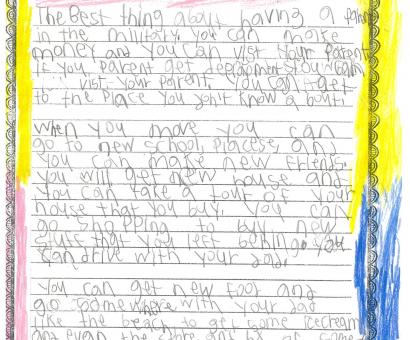 The Best thing about having a parent
in the military you can make
money and you can vist your parent
if you parent get deployment you can
vist your parent. you can get
to the place you don't know a bout.
When you move you can
go to new school, places, and
you can make new friends.
you will get new house and
you can take a tour of your
house that you buy. you can
go shopping to buy new
stuff that you left behind. you
can drive with your dad.
you can get new food and
go somewhere with your dad
like the beach to get some icecream
and even the store and